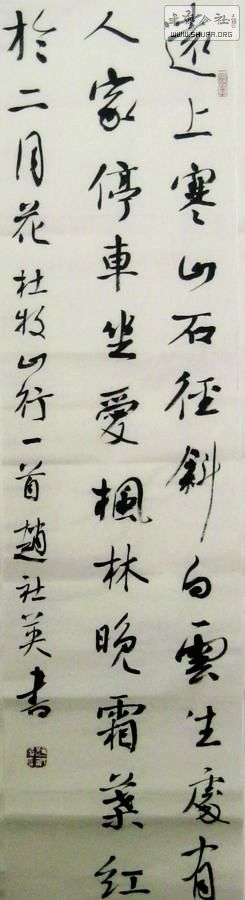 遠上寒山石徑斜白雲生處有
人家停車坐愛楓林晚霜葉紅
於二月花杜牧山行一首趙社英書
WWW.SHUFR.ORG